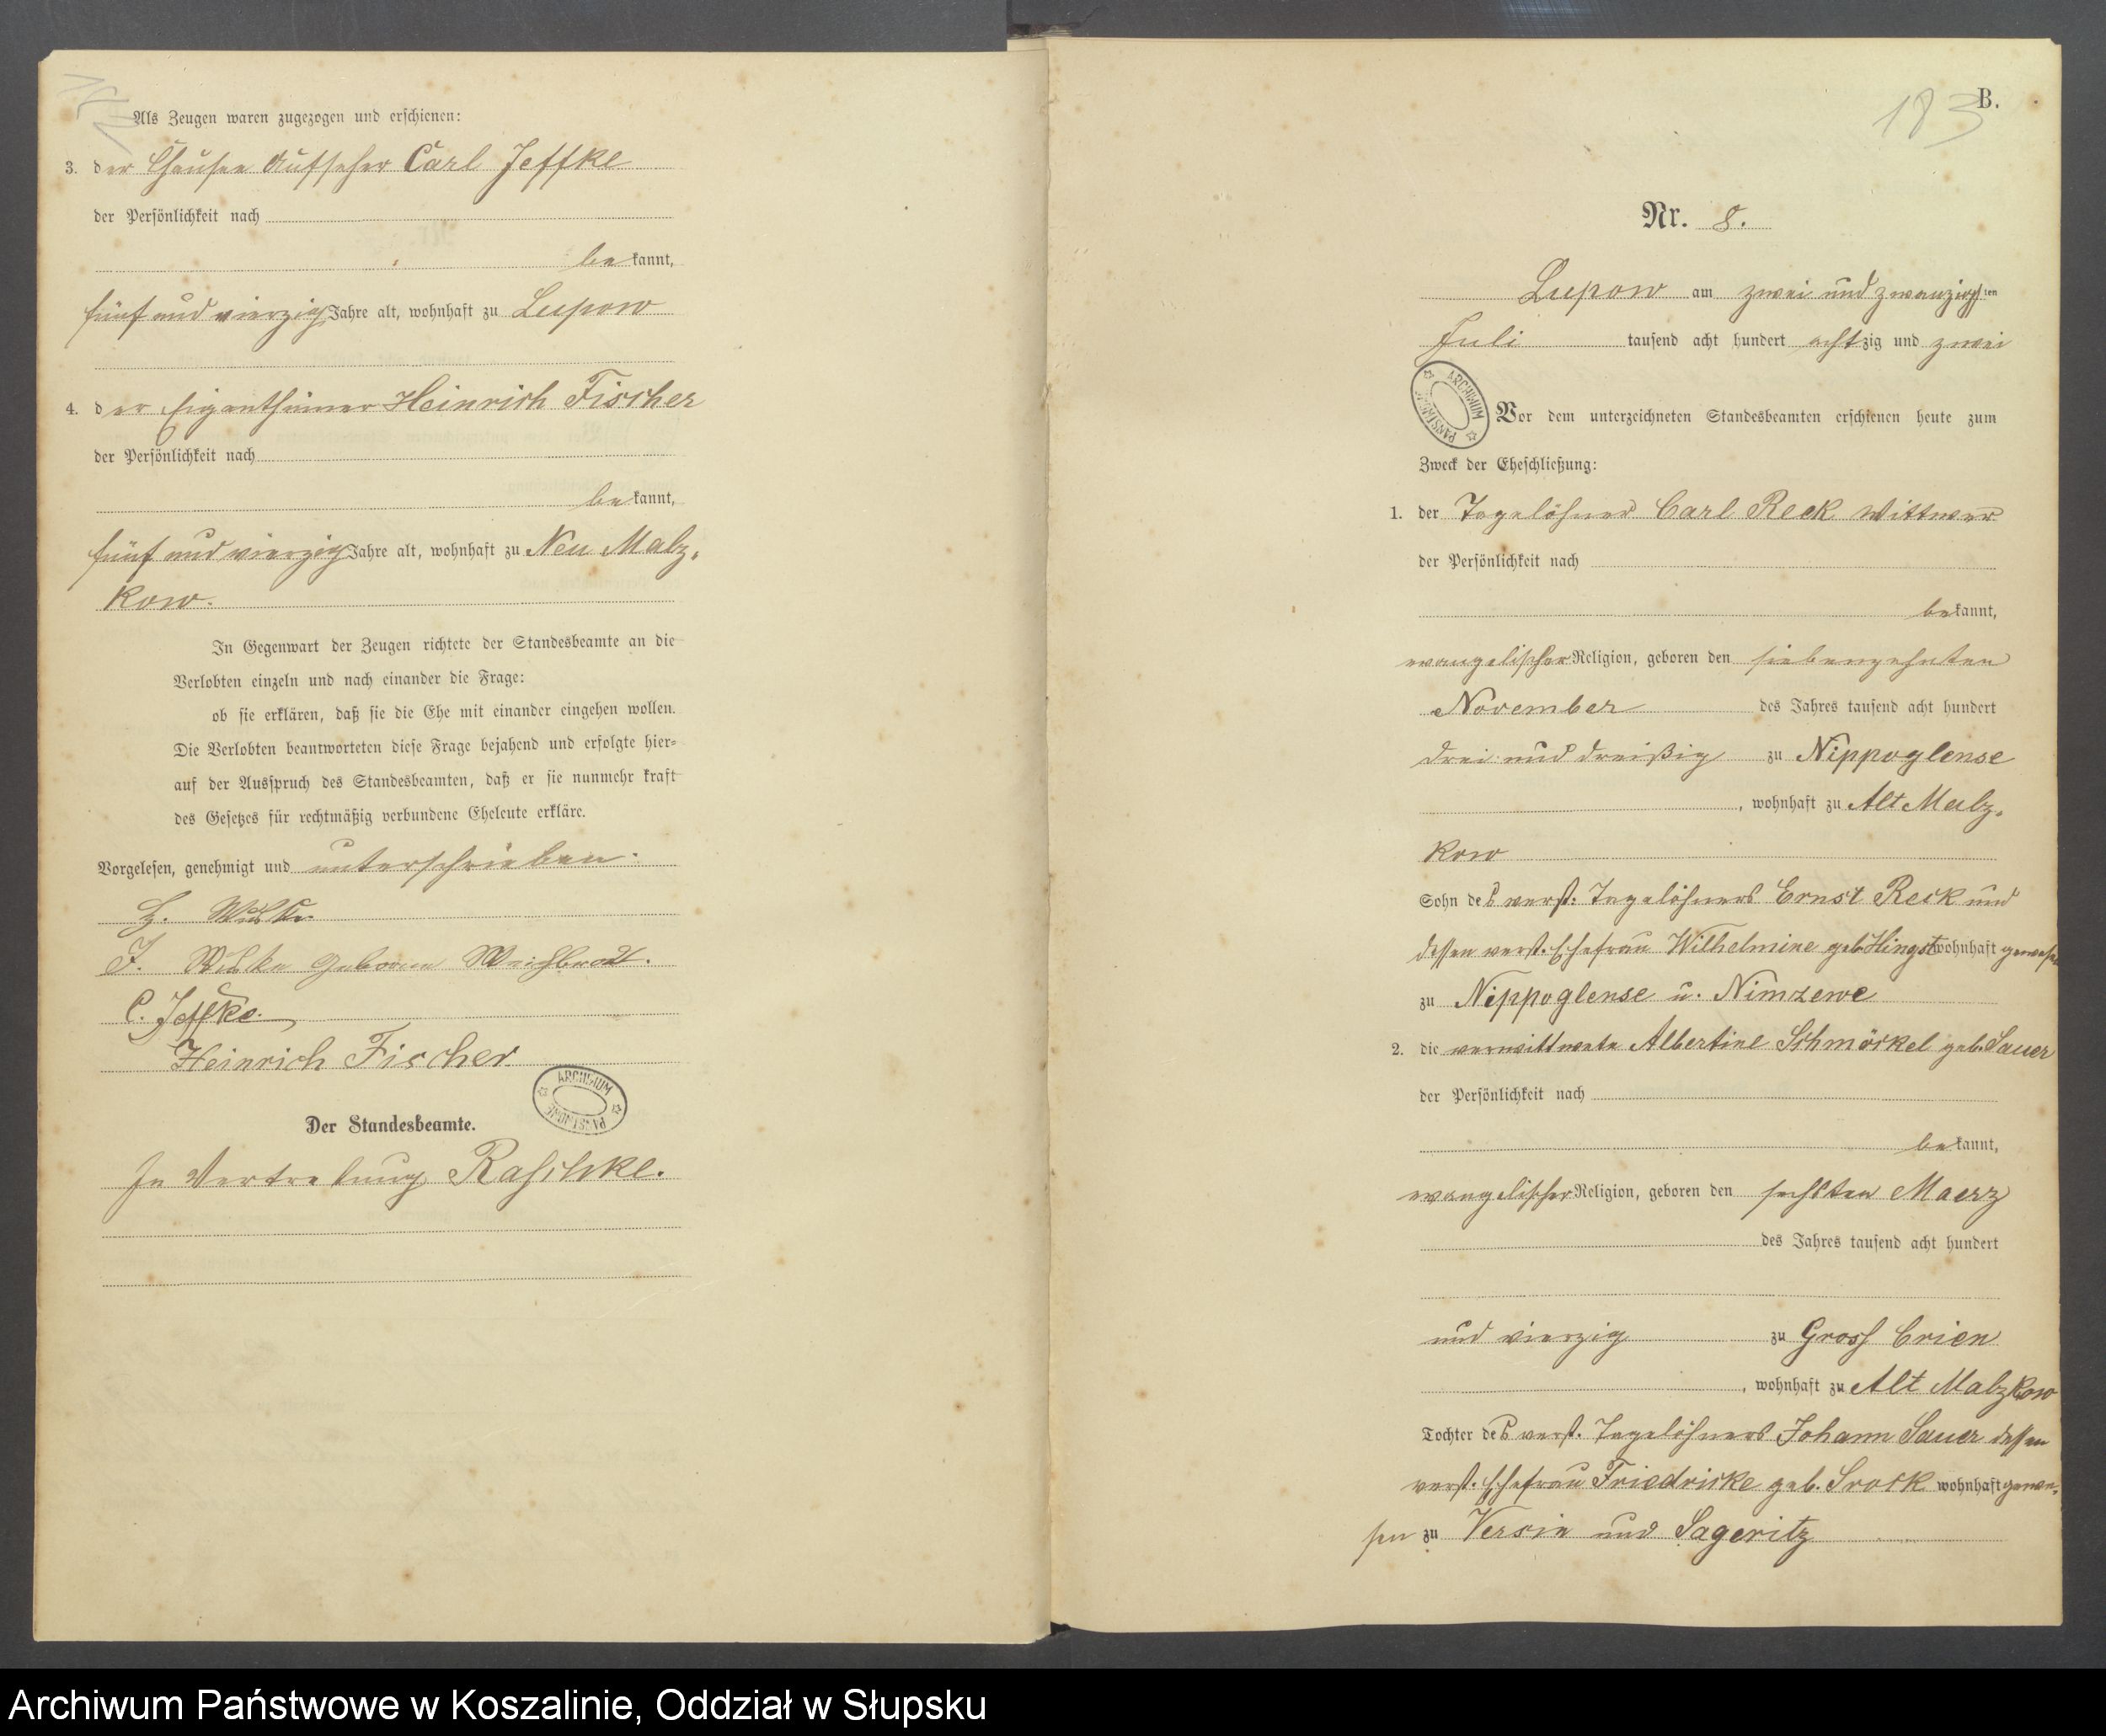 Als Zeugen waren zugezogen und erschienen:
3. der Chausee Aufseher Carl Jeffke
der Persönlichkeit nach
bekannt,
fünf und vierzig Jahre alt, wohnhaft zu Lupow
4. der Eigenthümer Heinrich Fischer
der Persönlichkeit nach
bekannt,
fünf und vierzig Jahre alt, wohnhaft zu Neu Malz-
kow.
In Gegenwart der Zeugen richtete der Standesbeamte an die
Verlobten einzeln und nach einander die Frage:
ob sie erklären, daß sie die Ehe mit einander eingehen wollen.
Die Verlobten beantworteten diese Frage bejahend und erfolgte hier-
auf der Ausspruch des Standesbeamten, daß er sie nunmehr kraft
des Gesetzes für rechtmäßig verbundene Eheleute erkläre.
Vorgelesen, genehmigt und unterschrieben.
geborene
C. Jeffke.
Heinrich Fischer
ARCHIWUM PAŃSTWOWE
Der Standesbeamte.
In Vertretung Raschke.
183
B.
Nr. 8.
Lupow am zwei und zwanzigsten
Juli tausend acht hundert achtzig und zwei
ARCHIWUM PAŃSTWOWE
Vor dem unterzeichneten Standesbeamten erschienen heute zum
Zweck der Eheschließung:
1. der Tagelöhner Carl Reck Wittwer
der Persönlichkeit nach
bekannt,
evangelischer Religion, geboren den siebenzehnten
November des Jahres tausend acht hundert
drei und dreißig zu Nippoglense
, wohnhaft zu Alt Malz-
kow
Sohn des verst. Tagelöhners Ernst Reck und
dessen verst. Ehefrau Wilhelmine geb. Hingst wohnhaft gewesen
zu Nippoglense u. Nimzewe
2. die verwittwete Albertine Schmöckel geb. Sauer
der Persönlichkeit nach
bekannt,
evangelischer Religion, geboren den sechsten Maerz
des Jahres tausend acht hundert
und vierzig zu Gross Crien
, wohnhaft zu Alt Malzkow
Tochter des verst. Tagelöhners Johann Sauer dessen
verst. Ehefrau Friedricke geb. Srock wohnhaft gewe-
sen zu Versin und Sageritz
Archiwum Państwowe w Koszalinie, Oddział w Słupsku